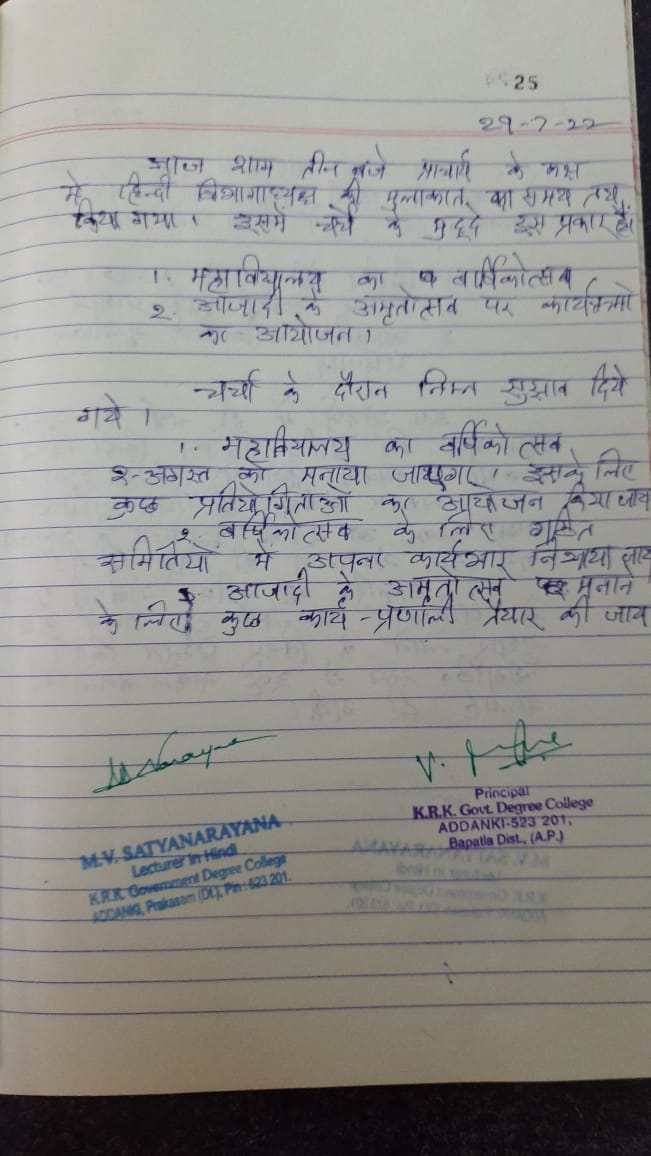 25
29-7-22
आज शाम तीन बजे प्राचार्य के कक्ष
में हिन्दी विभागाध्यक्ष की मुलाकात का समय तय
किया गया। इसमें चर्चे के मुद्दे इस प्रकार हैं।
1. महाविद्यालय का वार्षिकोत्सव
२. आजादी के अमृतोत्सव पर कार्यक्रमों
का आयोजन।
चर्चा के दौरान निम्न सुझाव दिये
गये।
1. महाविद्यालय का वार्षिकोत्सव
२-अगस्त को मनाया जाएगा। इसके लिए
कुछ प्रतियोगिताओं का आयोजन किया जाय
२. वार्षिकोत्सव के लिए गठित
समितियों में अपना कार्यभार निभाया जाय
3. आजादी के अमृतोत्सव मनाने
के लिए कुछ कार्य-प्रणाली तैयार की जाय
M.V. SATYANARAYANA
Lecturer in Hindi
K.R.K. Government Degree College
ADDANKI, Prakasam (Dt.), Pin : 523 201.
Principal
K.R.K. Govt. Degree College
ADDANKI-523 201,
Bapatla Dist., (A.P.)